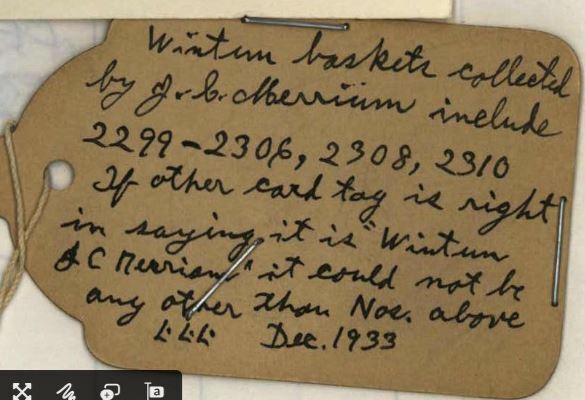 Wintun baskets collected
by J. C. Merriam include
2299-2306, 2308, 2310
If other card tag is right
in saying it is "Wintun
J C Merriam" it could not be
any other than Nos. above
Dec. 1933